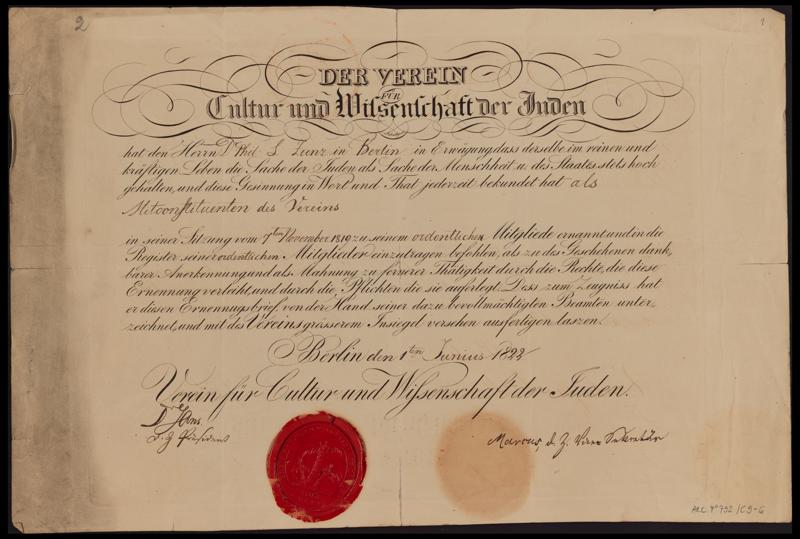 2
1
DER VEREIN
FÜR
Cultur und Wissenschaft der Juden
hat den Herrn Dr Phil. L Zunz in Berlin in Erwägung, dass derselbe im reinen und
kräftigen Leben die Sache der Juden als Sache der Menschheit u. des Staates stets hoch
gehalten, und diese Gesinnung in Wort und That jederzeit bekundet hat als
Mitconstituenten des Vereins
in seiner Sitzung vom 7ten November 1819 zu seinem ordentlichen Mitgliede ernannt und in die
Register seiner ordentlichen Mitglieder einzutragen befohlen, als zu des Geschehenen dank,
barer Anerkennung und als Mahnung zu fernerer Thätigkeit durch die Rechte, die diese
Ernennung verleiht, und durch die Pflichten die sie auferlegt. Dess zum Zeugniss hat
er diesen Ernennugsbrief, von der Hand seiner dazu bevollmächtigten Beamten unter,
zeichnet, und mit des Vereins grösserem Insiegel versehen ausfertigen laszen.
Berlin den 1ten Junius 1822
Verein für Cultur und Wissenschaft der Juden.
Dr Gans.
d. Z. Präsident
Marcus, d. Z. Vice Sekretär
ARC. 4° 792 / C3-6